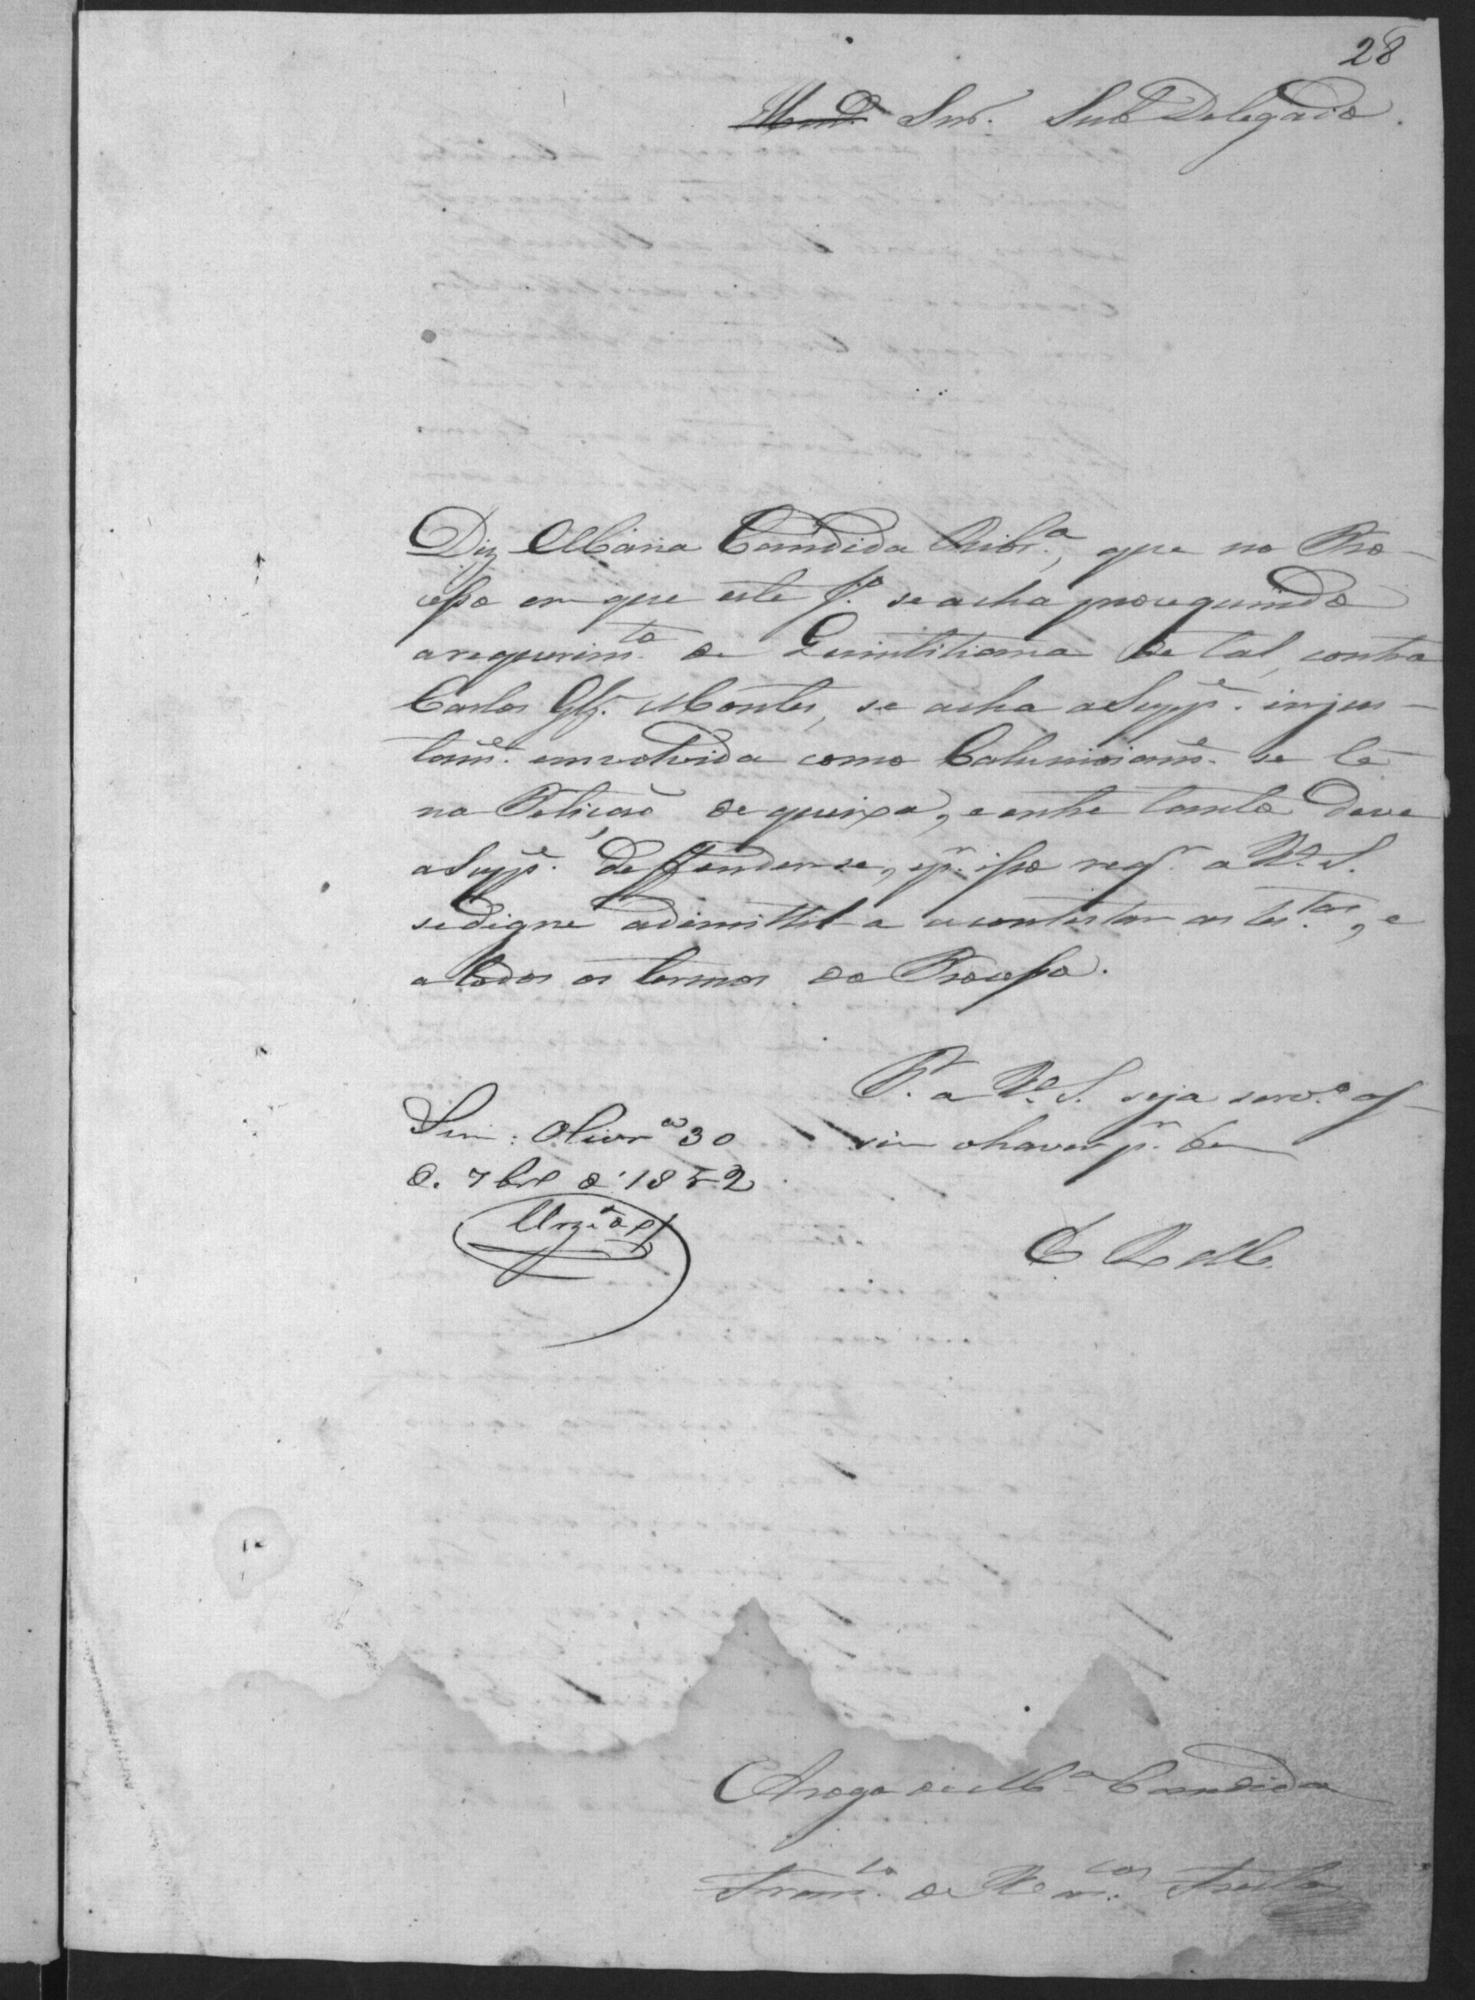 28
Snr. Sub Delegado.
Diz Maria Candida Ribr.ª, que no Pro-
cesso em que este J.º se acha proseguindo
a requerim.to de Quintiliana de tal, contra
Carlos Glz. Montes, se acha a Supp.e injus-
tam.e emvolvida como Calumniosam.e se lê
na Petição de queixa, e entre tanto deve
a Supp.e deffender-se, e p.r isso req.r a V. S.
se digne adimittil-a a contestar as tes.tas, e
a todos os termos do Processo.
P. a V. S. seja serv.º as-
sim o haver p.r bem
Sim: Oliv.ra 30
d. 7br.º d' 1852
E R M.
A rogo de M.ª Candida
Fran.co de